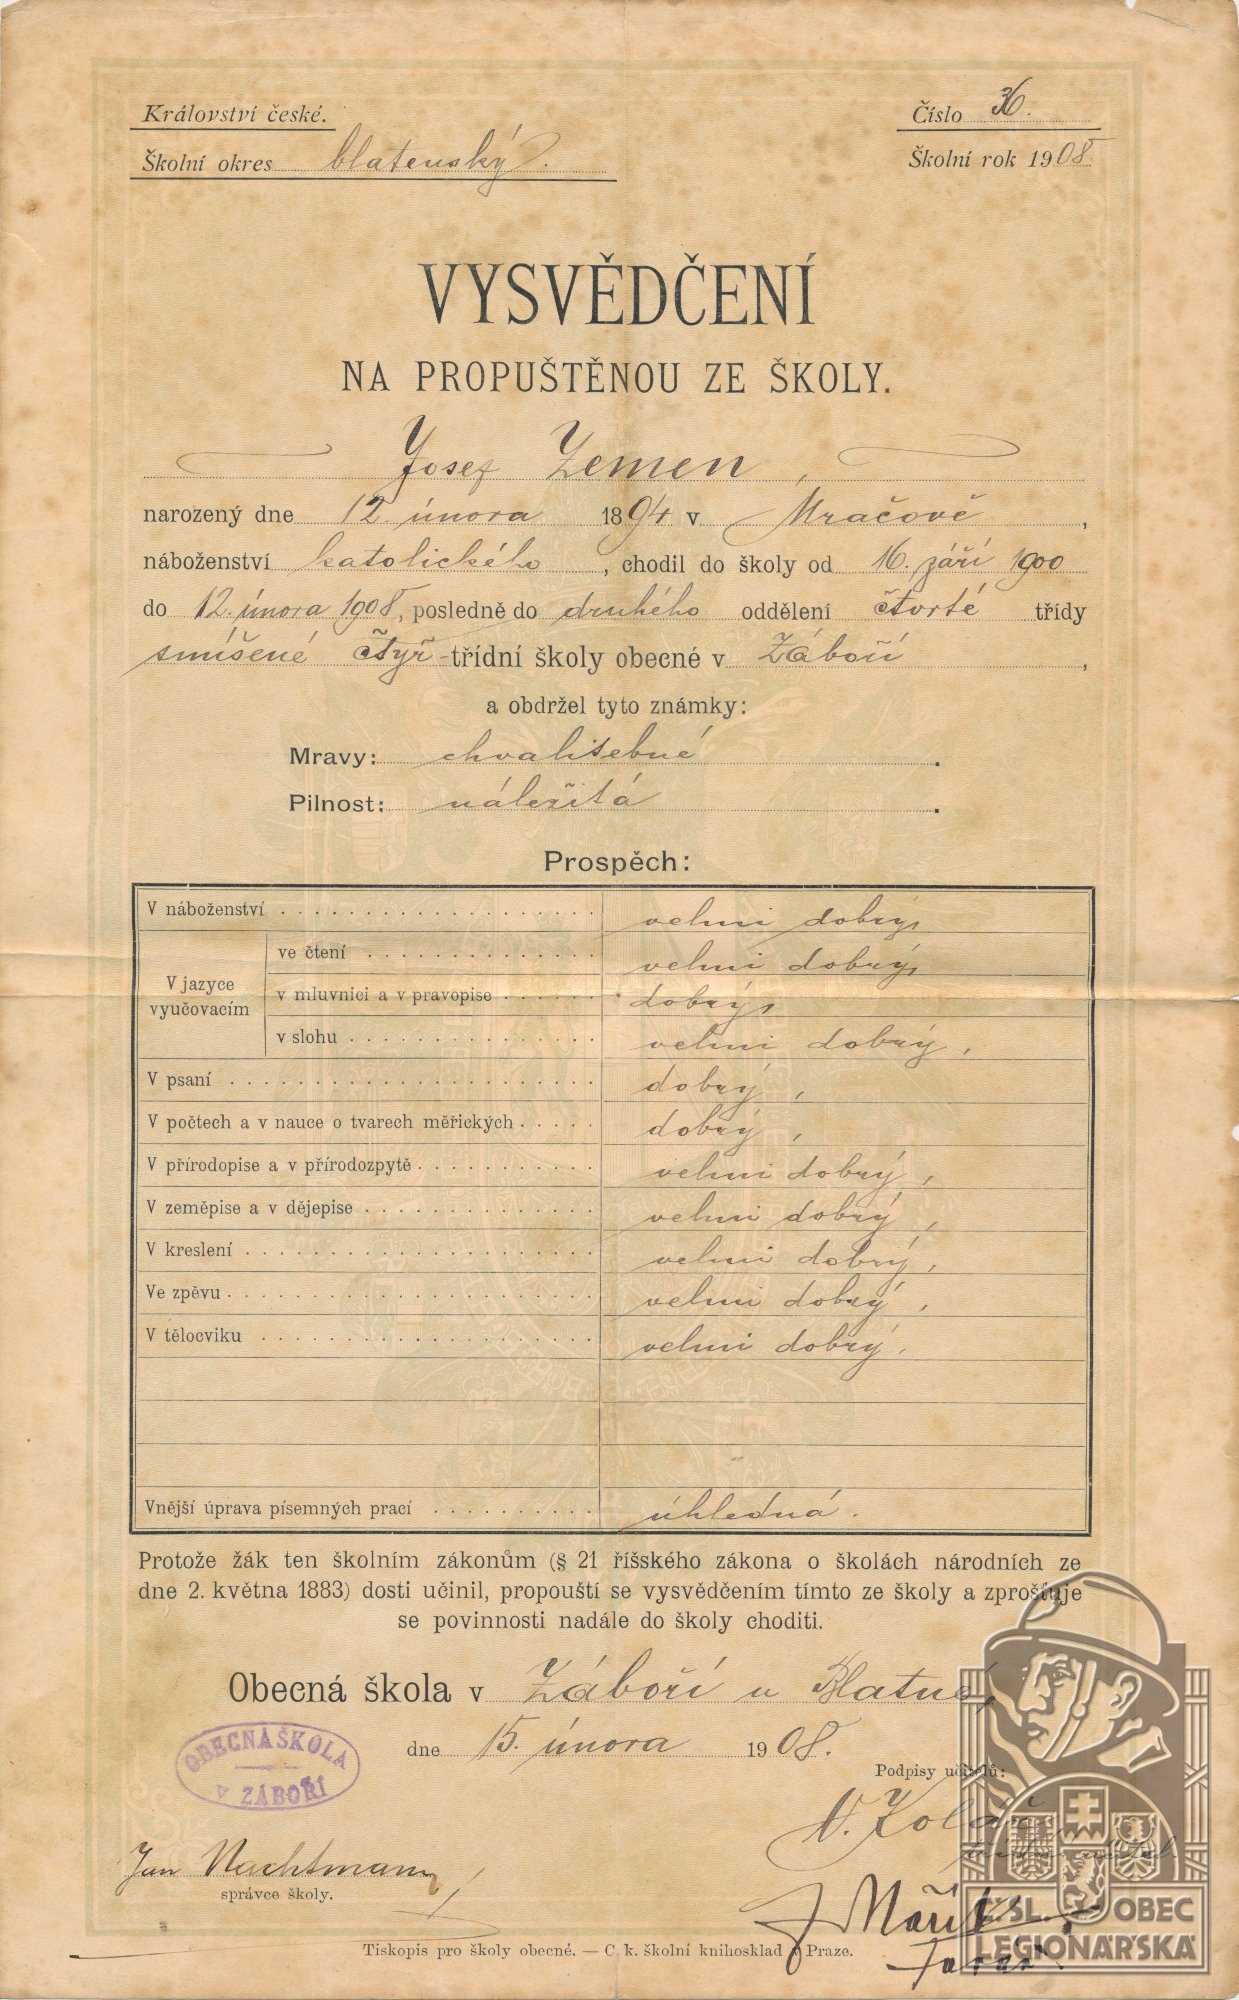 Království české.
Číslo 36.
Školní okres blatenský.
Školní rok 1908.
VYSVĚDČENÍ
NA PROPUŠTĚNOU ZE ŠKOLY.
Josef Zemen,
narozený dne 12. února 1894 v Mračově,
náboženství katolického, chodil do školy od 16. září 1900
do 12. února 1908, posledně do druhého oddělení čtvrté třídy
smíšené čtyř-třídní školy obecné v Záboří,
a obdržel tyto známky:
Mravy: chvalitebné.
Pilnost: náležitá.
Prospěch:
V náboženství velmi dobrý,
V jazyce vyučovacím
ve čtení velmi dobrý,
v mluvnici a v pravopise dobrý,
v slohu velmi dobrý,
V psaní dobrý,
V počtech a v nauce o tvarech měřických dobrý,
V přírodopise a v přírodozpytě velmi dobrý,
V zeměpise a v dějepise velmi dobrý,
V kreslení velmi dobrý,
Ve zpěvu velmi dobrý,
V tělocviku velmi dobrý.
Vnější úprava písemných prací úhledná.
Protože žák ten školním zákonům (§ 21 říšského zákona o školách národních ze
dne 2. května 1883) dosti učinil, propouští se vysvědčením tímto ze školy a zprošťuje
se povinnosti nadále do školy choditi.
Obecná škola v Záboří u Blatné,
dne 15. února 1908.
OBECNÁ ŠKOLA
v ZÁBOŘÍ
Podpisy učitelů:
Jan Nachtmann
správce školy.
Tiskopis pro školy obecné. — C. k. školní knihosklad v Praze.
farář
Č.SL. OBEC
LEGIONÁŘSKÁ